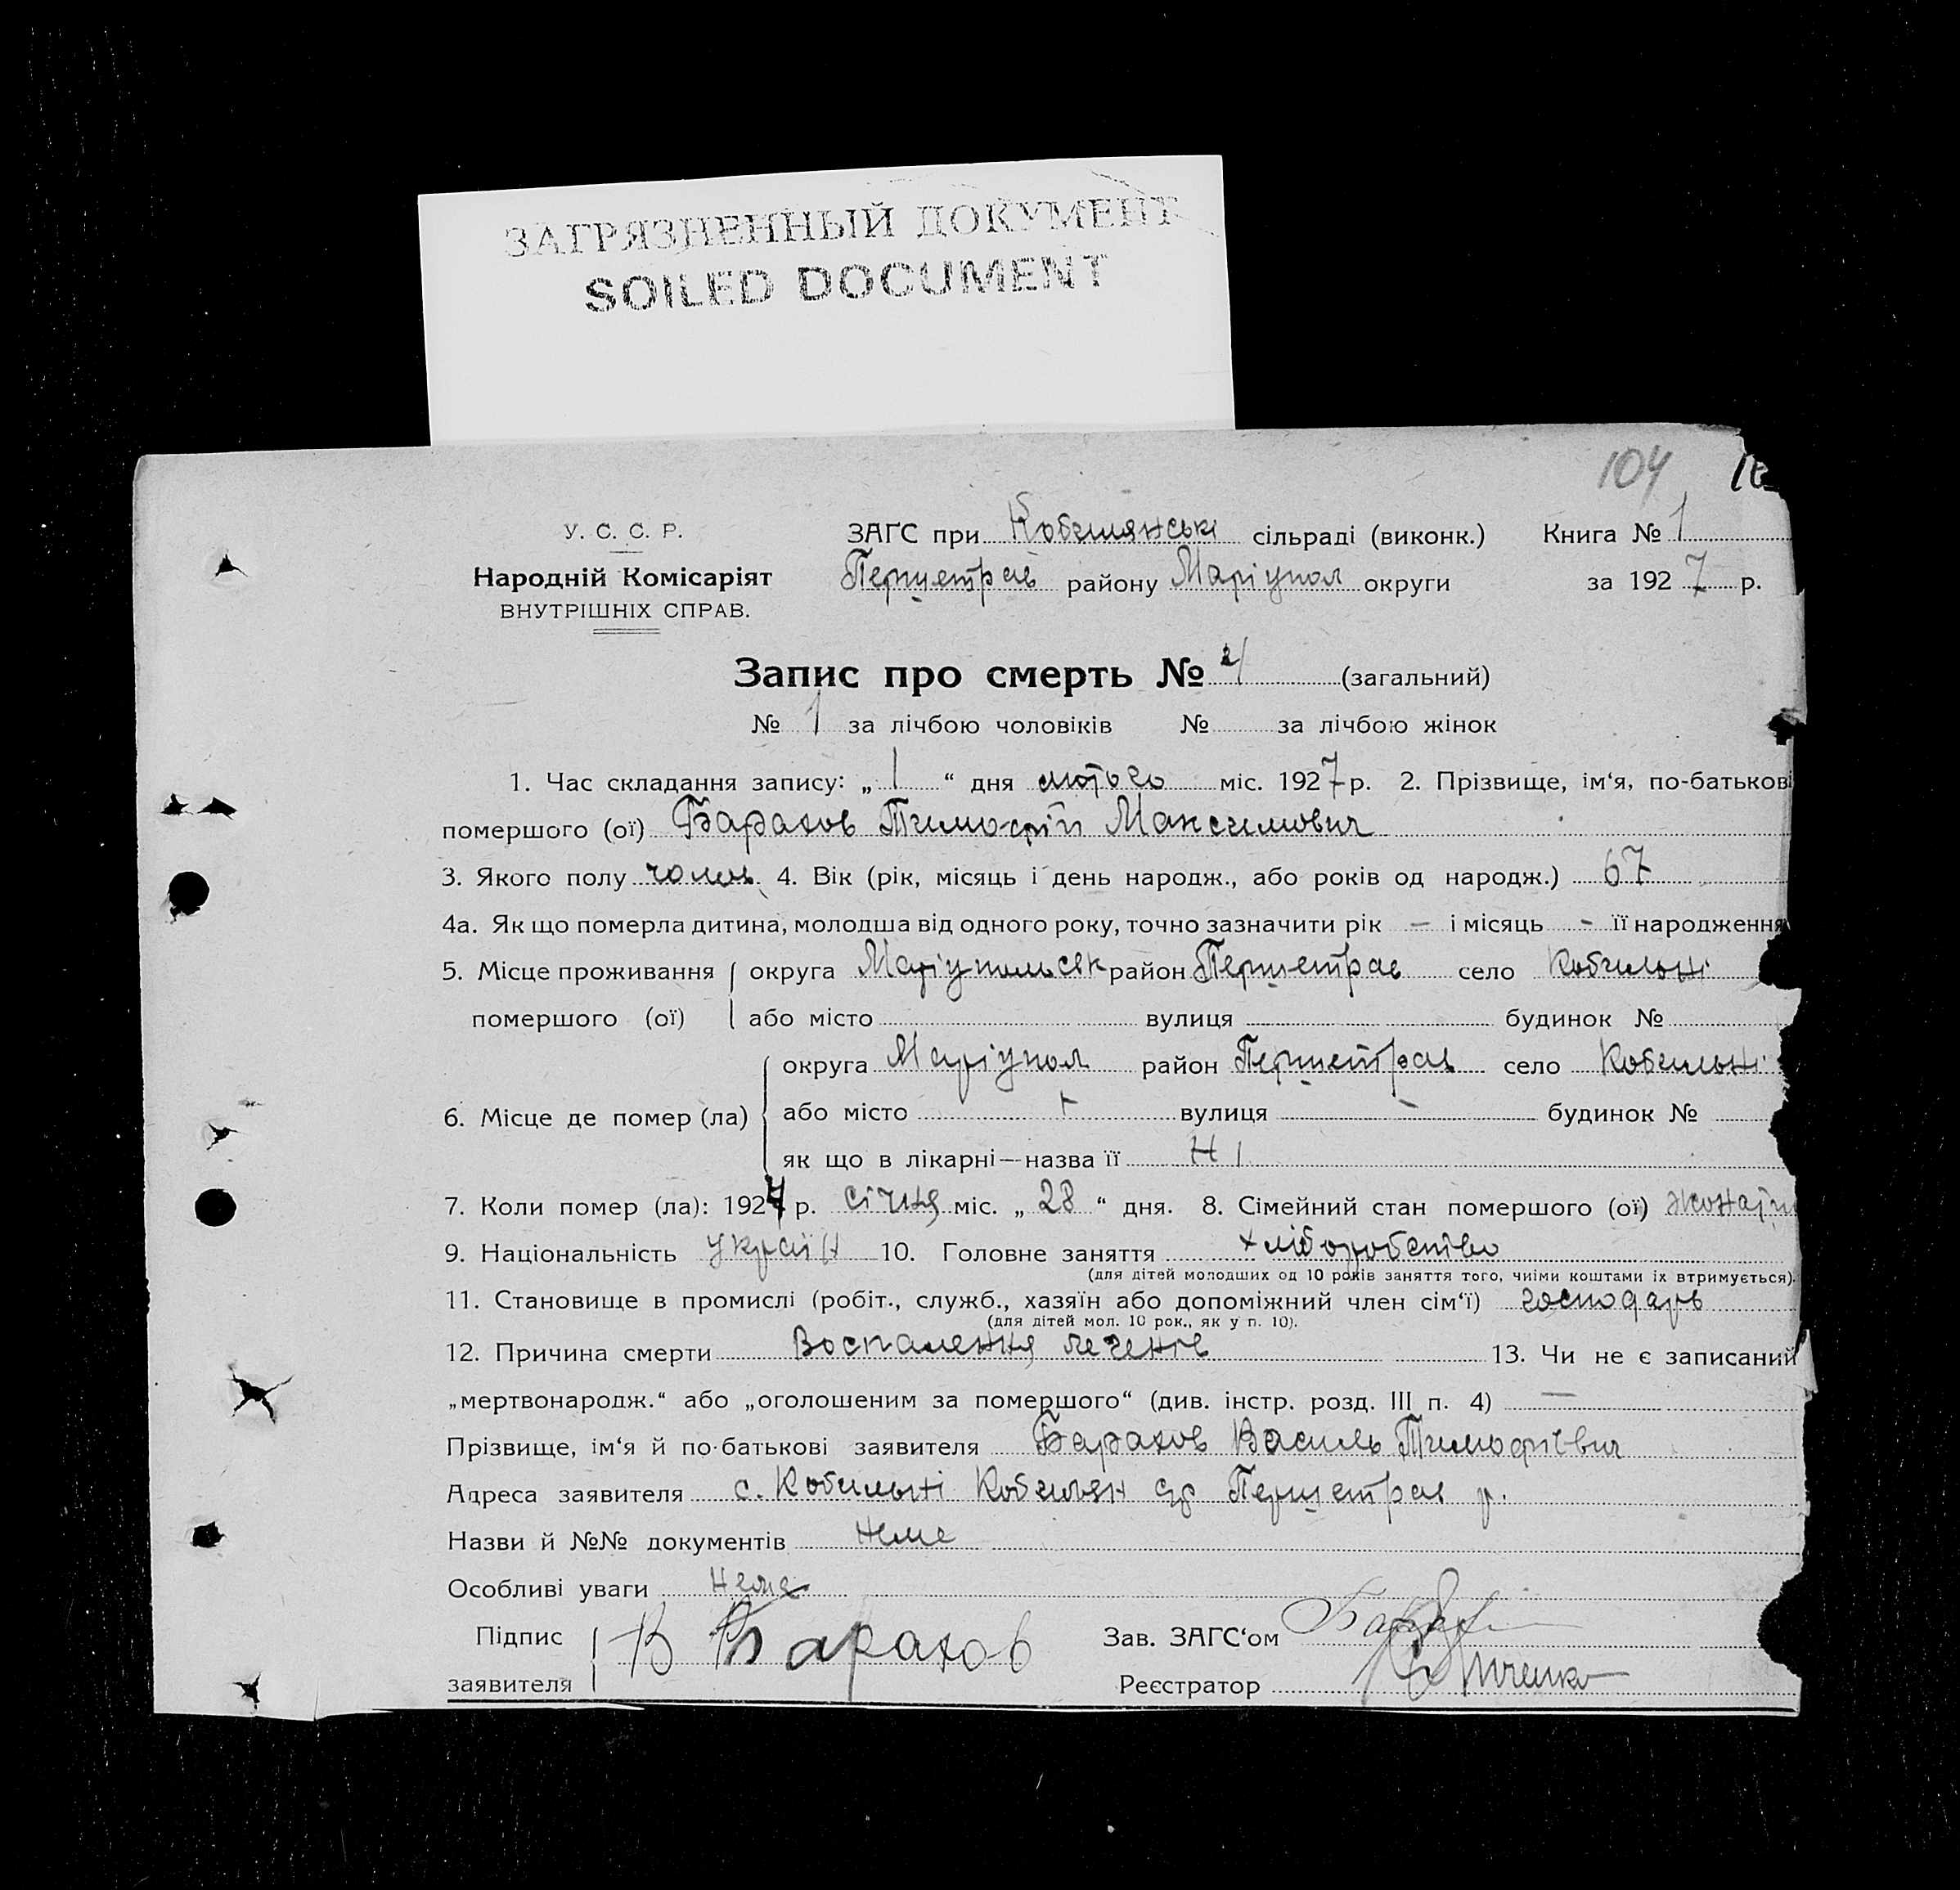 ЗАГРЯЗНЕННЫЙ ДОКУМЕНТ
SOILED DOCUMENT
104
У. С. С. Р.
Народній Комісаріят
ВНУТРІШНІХ СПРАВ.
ЗАГС при Кобилянські сільраді (виконк.) Книга № 1
Першетрав району Маріупол округи за 1927 р.
Запис про смерть № (загальний)
№ 1 за лічбою чоловіків № за лічбою жінок
1. Час складання запису: „ 1 “ дня лютого міс. 1927 р. 2. Прізвище, ім‘я, по-батькові
помершого (ої) Барахов Тимофій Максимович
3. Якого полу чолов. 4. Вік (рік, місяць і день народж., або років од народж.) 67
4а. Як що померла дитина, молодша від одного року, точно зазначити рік – і місяць - її народження
5. Місце проживання округа Маріупольськ район Першетрав село Кобильні
помершого (ої) або місто вулиця будинок №
округа Маріупол район Першетрав село Кобильні
6. Місце де помер (ла) або місто вулиця – будинок №
як що в лікарні—назва її Ні
7. Коли помер (ла): 1927 р. січня міс. „ 28 “ дня. 8. Сімейний стан помершого (ої)
9. Національність україн 10. Головне заняття хліборобство
(для дітей молодших од 10 років заняття того, чиїми коштами їх втримується).
11. Становище в промислі (робіт., служб., хазяїн або допоміжний член сім‘ї) господарь
(для дітей мол. 10 рок., як у п. 10).
12. Причина смерти Воспалення печенів 13. Чи не є записаний
„мертвонародж.“ або „оголошеним за помершого“ (див. інстр. розд. III п. 4) —
Прізвище, ім‘я й по-батькові заявителя Барахов Василь Тимофієвич
Адреса заявителя с. Кобильні Кобилян с/р Першетрав р.
Назви й №№ документів неме
Особливі уваги неме
Підпис заявителя В Барахов
Зав. ЗАГС‘ом
Реєстратор